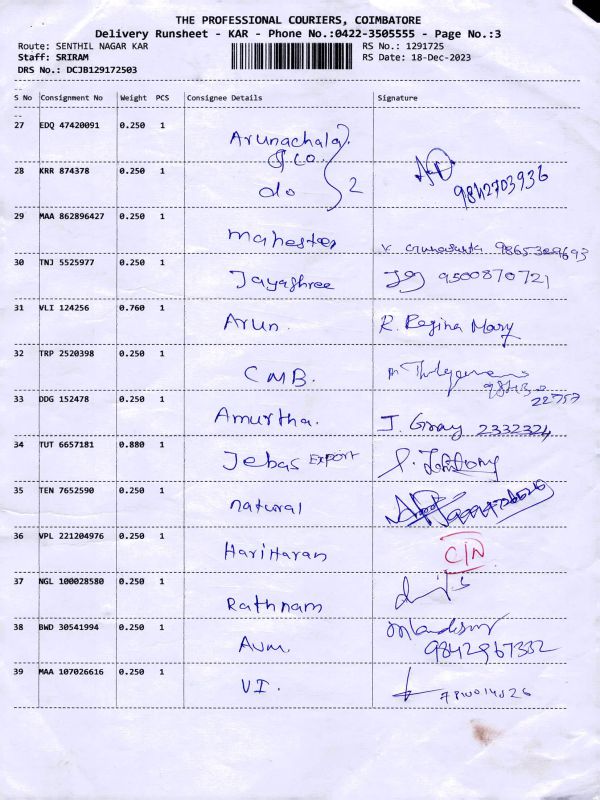 THE PROFESSIONAL COURIERS, COIMBATORE
Delivery Runsheet - KAR - Phone No.:0422-3505555 - Page No.:3
Route: SENTHIL NAGAR KAR RS No.: 1291725
Staff: SRIRAM RS Date: 18-Dec-2023
DRS No.: DCJB129172503
S No Consignment No Weight PCS Consignee Details Signature
27 EDQ 47420091 0.250 1 Arunachala & co.
28 KRR 874378 0.250 1 do 2 9842703936
29 MAA 862896427 0.250 1
30 TNJ 5525977 0.250 1 Jayashree 9500870721
31 VLI 124256 0.760 1 Arun. R. Regina Mary
32 TRP 2520398 0.250 1 CMB.
33 DDG 152478 0.250 1 Amurtha. 2332324
34 TUT 6657181 0.880 1 Jebas Export
35 TEN 7652590 0.250 1 natural
36 VPL 221204976 0.250 1 Hariharan
37 NGL 100028580 0.250 1 Rathnam
38 BWD 30541994 0.250 1 Avm. 9842967332
39 MAA 107026616 0.250 1 VI.